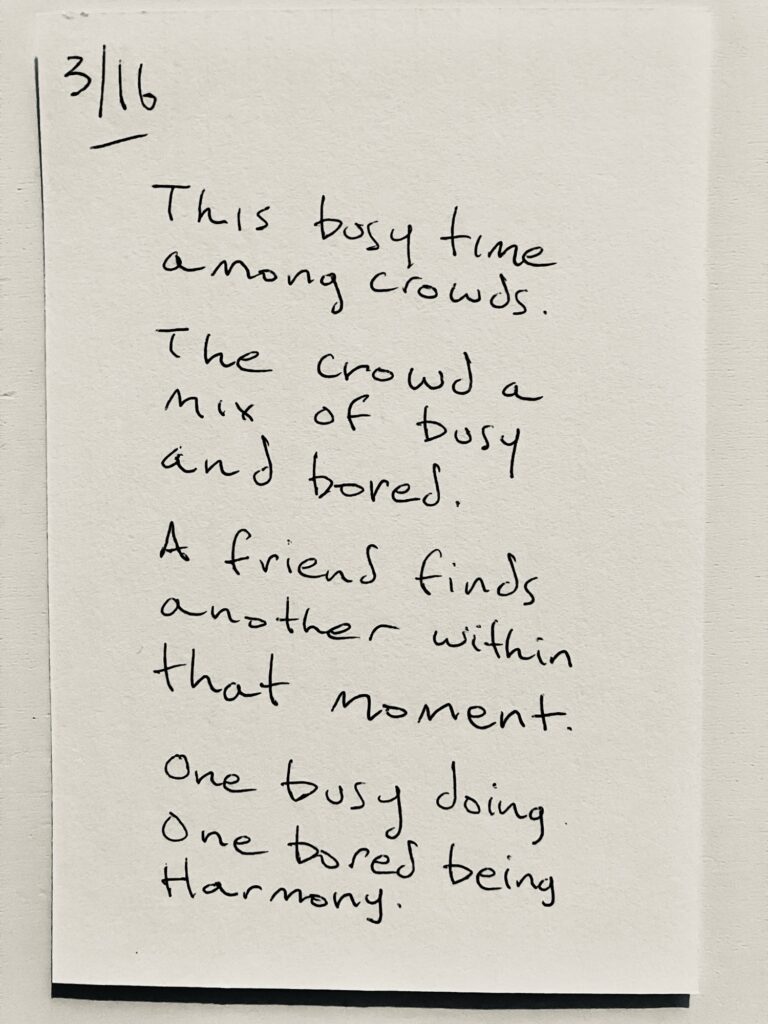 3/16
This busy time
among crowds.
The crowd a
mix of busy
and bored.
A friend finds
another within
that moment.
One busy doing
One bored being
Harmony.